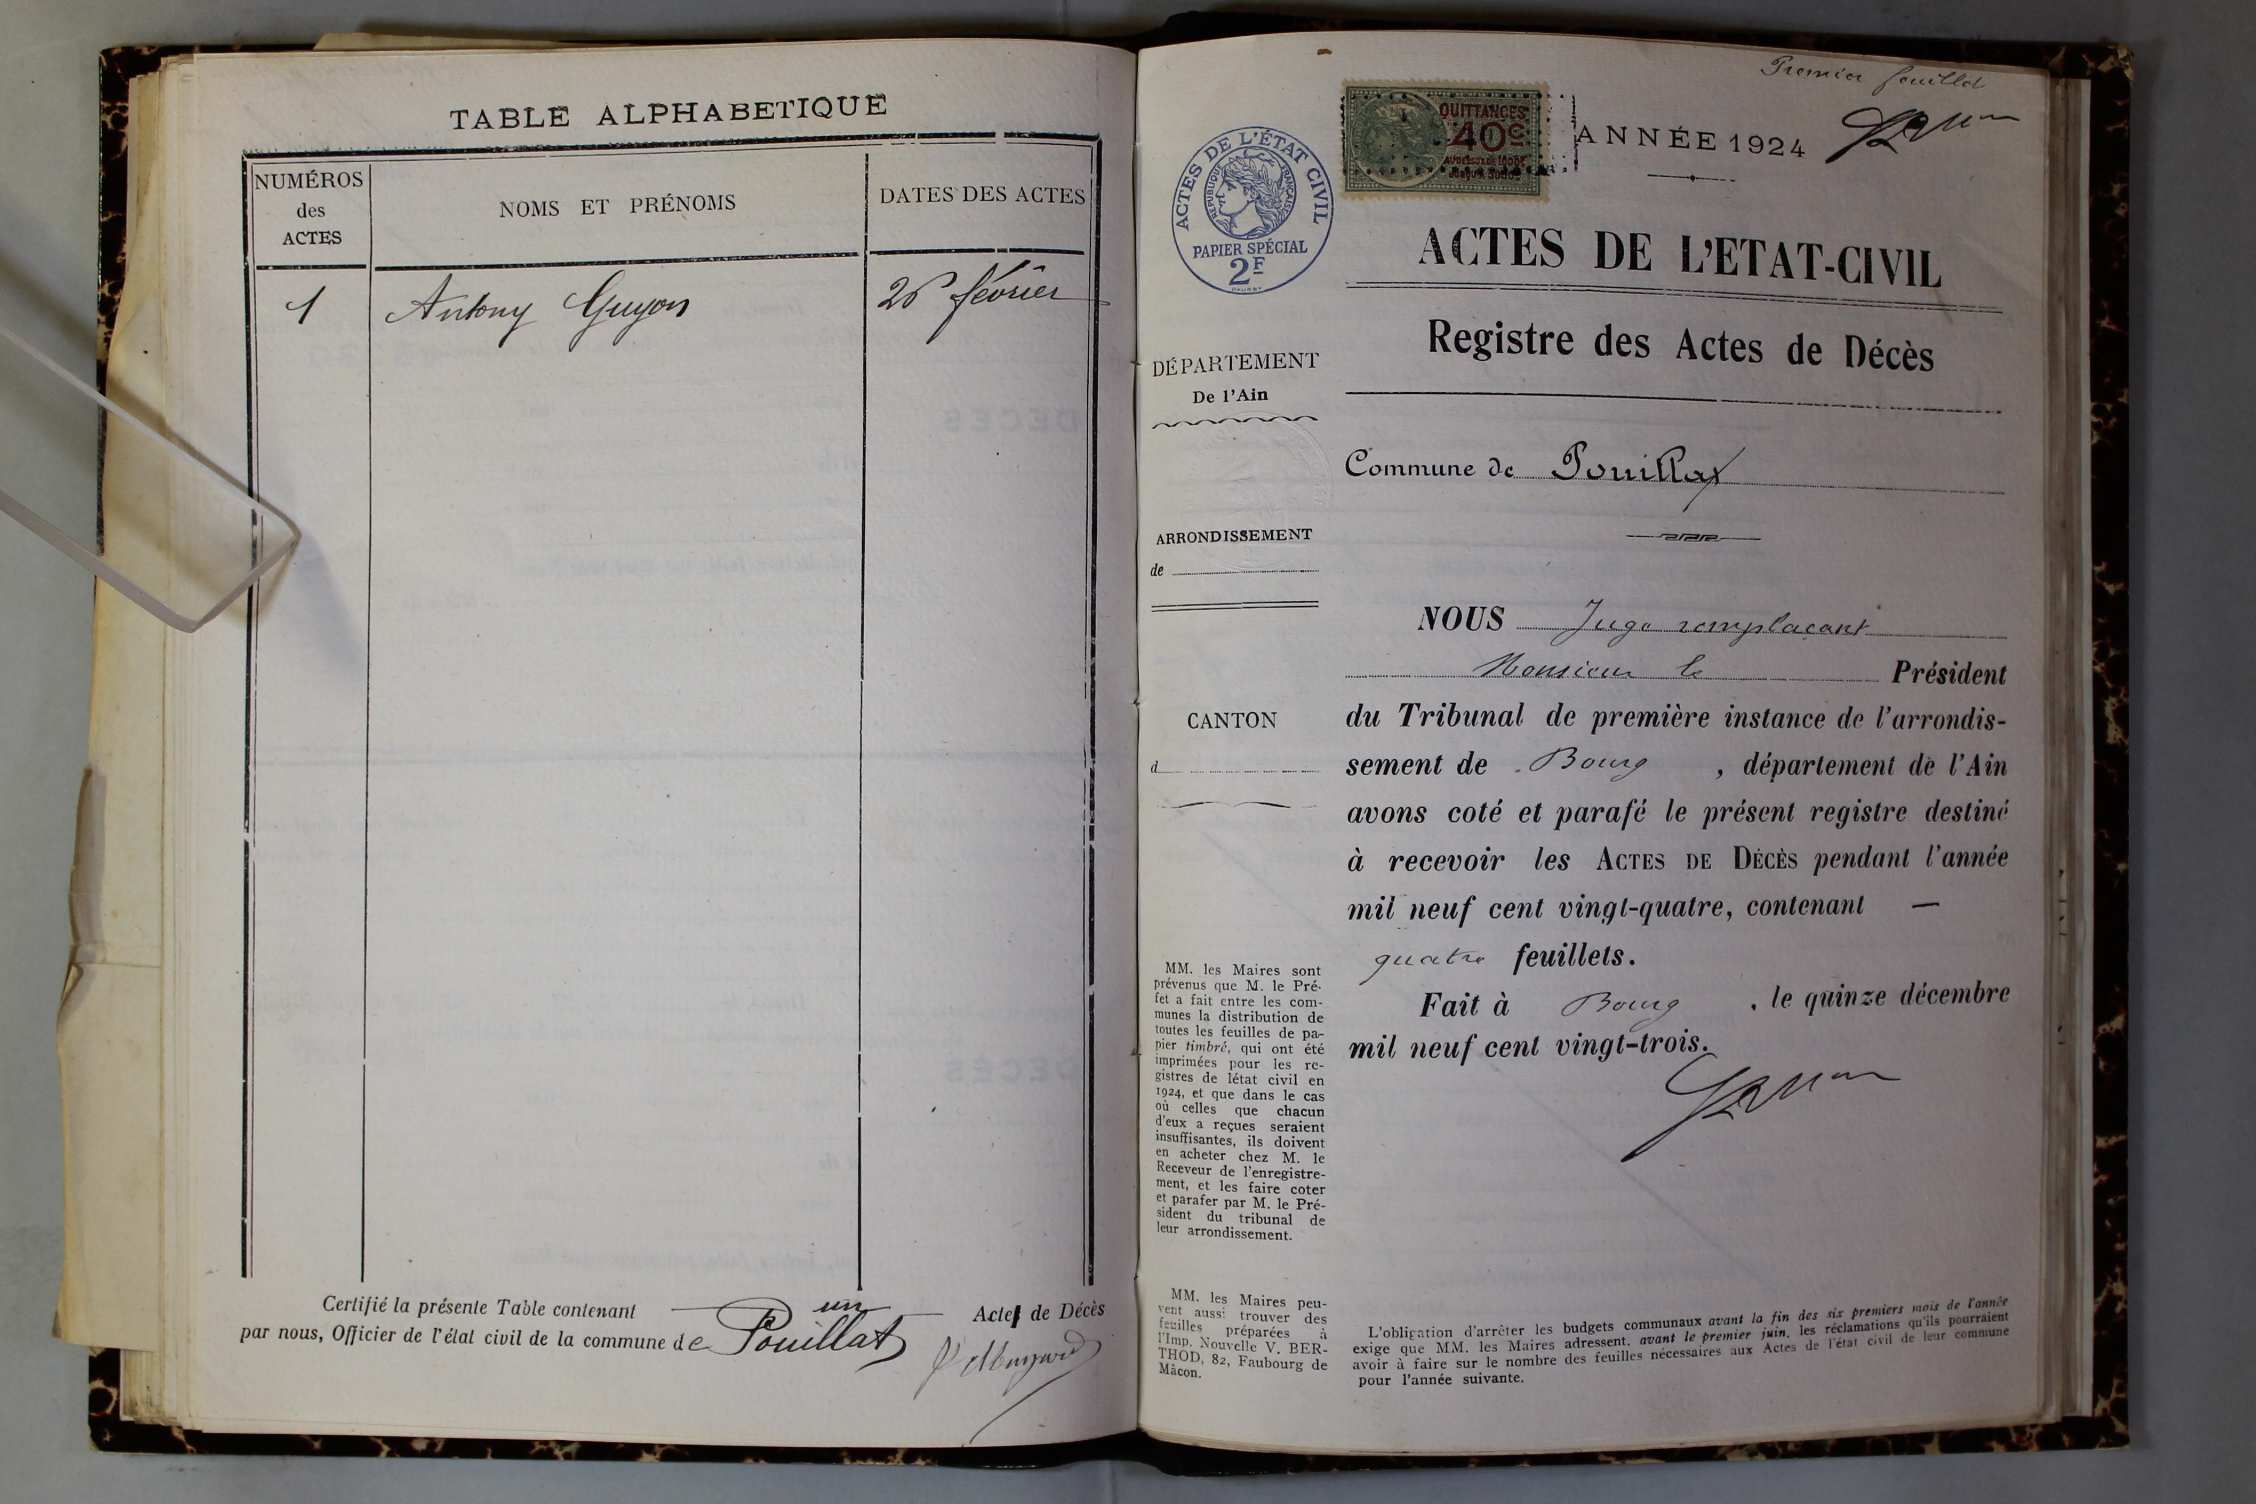 TABLE ALPHABETIQUE
NUMÉROS
des
ACTES
NOMS ET PRÉNOMS
DATES DES ACTES
1
Antony Guyon
26 février
Certifié la présente Table contenant un Actes de Décès
par nous, Officier de l'état civil de la commune de Pouillat
Premier feuillet
QUITTANCES
40c
ANNÉE 1924
ACTES DE L'ÉTAT CIVIL
RÉPUBLIQUE FRANÇAISE
PAPIER SPÉCIAL
2F
ACTES DE L'ETAT-CIVIL
Registre des Actes de Décès
DÉPARTEMENT
De l'Ain
Commune de Pouillat
ARRONDISSEMENT
de
CANTON
d
NOUS Juge remplaçant
Monsieur le Président
du Tribunal de première instance de l'arrondis-
sement de Bourg, département de l'Ain
avons coté et parafé le présent registre destiné
à recevoir les ACTES DE DÉCÈS pendant l'année
mil neuf cent vingt-quatre, contenant —
quatre feuillets.
Fait à Bourg, le quinze décembre
mil neuf cent vingt-trois.
MM. les Maires sont
prévenus que M. le Pré-
fet a fait entre les com-
munes la distribution de
toutes les feuilles de pa-
pier timbré, qui ont été
imprimées pour les re-
gistres de létat civil en
1924, et que dans le cas
où celles que chacun
d'eux a reçues seraient
insuffisantes, ils doivent
en acheter chez M. le
Receveur de l'enregistre-
ment, et les faire coter
et parafer par M. le Pré-
sident du tribunal de
leur arrondissement.
MM. les Maires peu-
vent aussi trouver des
feuilles préparées à
l'Imp. Nouvelle V. BER-
THOD, 82, Faubourg de
Mâcon.
L'obligation d'arrêter les budgets communaux avant la fin des six premiers mois de l'année
exige que MM. les Maires adressent, avant le premier juin, les réclamations qu'ils pourraient
avoir à faire sur le nombre des feuilles nécessaires aux Actes de l'état civil de leur commune
pour l'année suivante.